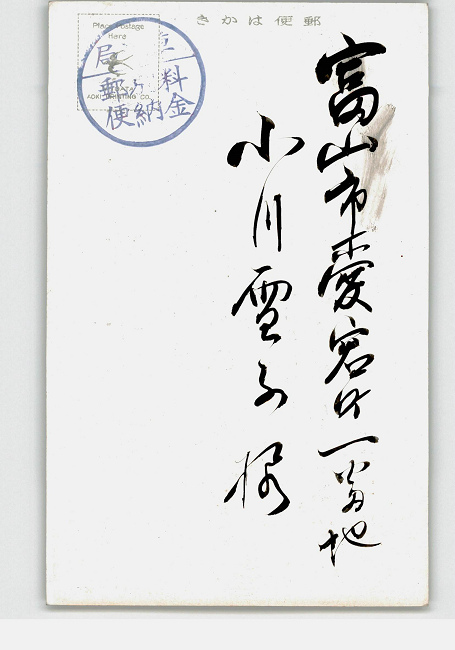 きかは便郵
Place Postage
Here
料金
郵便
納
富山市愛宕町一番地
小川雪子様